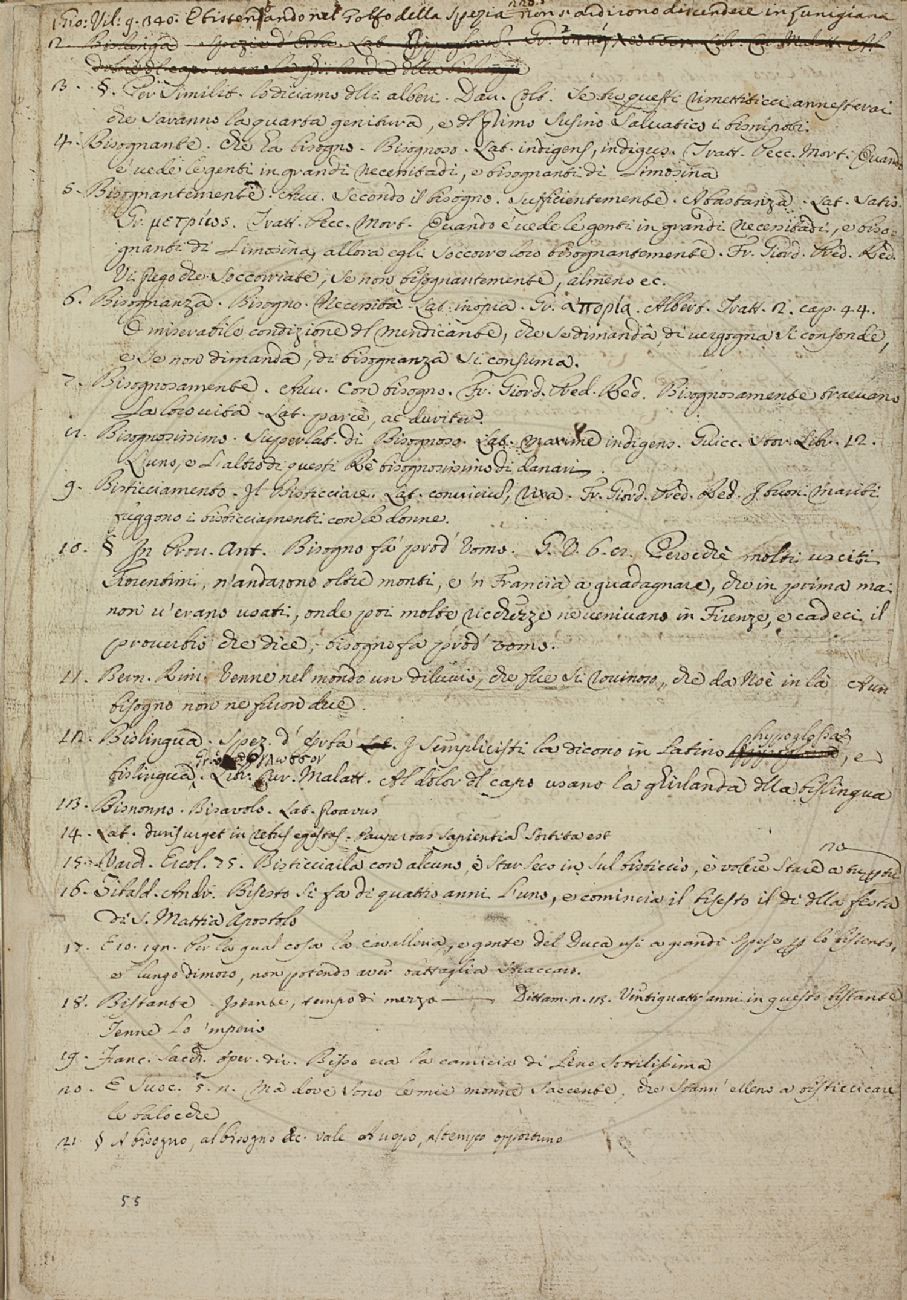 1 Gio: Vil: 9. 340. E bistentando nel Golfo della Spezia non s'ardirono discendere in Lunigiana
2. Bislingua Spezie d'Erba. Lat.
3. §. Per Similit. lo diciamo dlli alberi. Dav. Colt. Se tu questi rimettiticci annesterai
che saranno la quarta genitura, e dl primo Susino Salvatico i bisnipoti.
4. Bisognante. Che ha bisogno. Bisognoso. Lat. indigens, indigus. Tratt. Pecc. Mort. Quando
e' vede le genti in grandi necessitadi, e bisognanti di Limosina
5. Bisognantemente. Avv. Secondo il bisogno. Sufficientemente. Abastanza. Lat. Satis.
Gr. μετρίως. Tratt. Pecc. Mort. Quando e' vede le genti in grandi Necessitadi, e biso-
gnanti di Limosina, allora egli Soccorre loro bisognantemente. Fr. Giord. Pred. Red.
Vi prego che Soccorriate, Se non bisognantemente, almeno ec.
6. Bisognanza. Bisogno. Necessità. Lat. inopia. Gr. ἀπορία. Albert. Tratt. 2. cap. 44.
E miserabile condizione dl Mendicante, che se dimanda di vergogna Si confonde,
e Se non dimanda, di bisognanza Si consuma.
7. Bisognosamente. Avv. Con bisogno. Fr. Giord. Pred. Red. Bisognosamente traevano
La loro vita Lat. parcè, ac duriter.
8. Bisognosissimo. Superlat. di Bisognoso. Lat. maxime indigens. Guicc. Stor. Libr. 12.
L'uno, e l'altro di questi Rè bisognosissimo di danari.
9. Bisticciamento. Il Bisticciare. Lat. convicium, rixa. Fr. Giord. Pred. Red. I buoni mariti
fuggono i bisticciamenti con le donne.
10. § In Prov. Ant. Bisogno fà prod' Uomo. G. V. 6. Perocchè molti usciti
Fiorentini, n'andarono oltre monti, e 'n Francia a guadagnare, che in prima mai
non v'erano usati, onde poi molte ricchezze ne venivano in Firenze, e cadeci il
proverbio che dice, bisogno fa prod' uomo.
11. Bern. Rim. Venne nel mondo un diluvio, che fue Si rovinoso, che da Noè in là Aun
bisogno non ne furon due.
12. Bislingua. Spez. d'Erba. I Semplicisti la dicono in Latino hypoglossa, e
bislingua. Libr. Cur. Malatt. Al dolor dl capo usano la ghirlanda dlla bislingua
13. Bisnonno. Bisavolo. Lat. proavus
14. Lat. duris urget in rebus egestas. Paupertas Sapientiam Sortita est
15. Varch. Ercol. 75. Bisticciarla con alcuno, è Star Seco in Sul bisticcio, è volere Stare a tu per tu
16. Bisesto Si fa di quattro anni L'uno, e comincia il bisesto il dì dlla festa
di S. Mattia Apostolo
17. Per la qual cosa la cavalleria, e gente del Duca usi a grandi Spese per lo bistento,
e lungo dimoro, non potendo aver battaglia
18. Bistante. Istante, tempo di mezzo Dittam. Vintiquattr'anni in questo bistante
Tenne Lo 'mperio
19. Franc. Sacch. Oper. div. Bisso era la camicia di Lino Sottilissima
20. E Suoc. 5. 2. Ma dove Sono le mie monne Saccente, che Stann' elleno a bisticciare
le balocche
21. § A bisogno, al bisogno &c. vale A uopo, A tempo opportuno
55